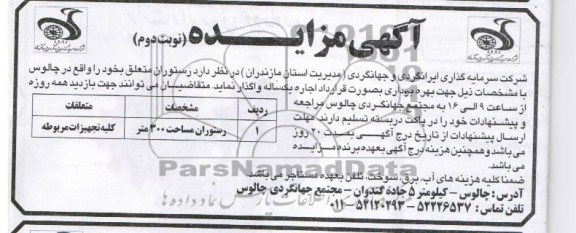 آگهی مزایده (نوبت دوم)
شرکت سرمایه گذاری ایرانگردی و جهانگردی (مدیریت استان مازندران) در نظر دارد رستوران متعلق بخود را واقع در چالوس
با مشخصات ذیل جهت بهره برداری بصورت قرارداد اجاره یکساله واگذار نماید. متقاضیان می توانند جهت بازدید همه روزه
از ساعت ۹ الی ۱۶ به مجتمع جهانگردی چالوس مراجعه
و پیشنهادات خود را در پاکت دربسته تسلیم دارند. مهلت
ارسال پیشنهادات از تاریخ درج آگهی بمدت ۲۰ روز
می باشد و همچنین هزینه درج آگهی بعهده برنده مزایده
می باشد.
ردیف مشخصات متعلقات
۱ رستوران مساحت ۳۰۰ متر کلیه تجهیزات مربوطه
ضمنا کلیه هزینه های آب، برق، سوخت، تلفن بعهده مستاجر می باشد
آدرس: چالوس - کیلومتر ۵ جاده گندوان - مجتمع جهانگردی چالوس
تلفن تماس: ۵۲۲۲۶۵۳۷ - ۵۲۱۲۰۲۹۳-۰۱۱
ParsNamadData